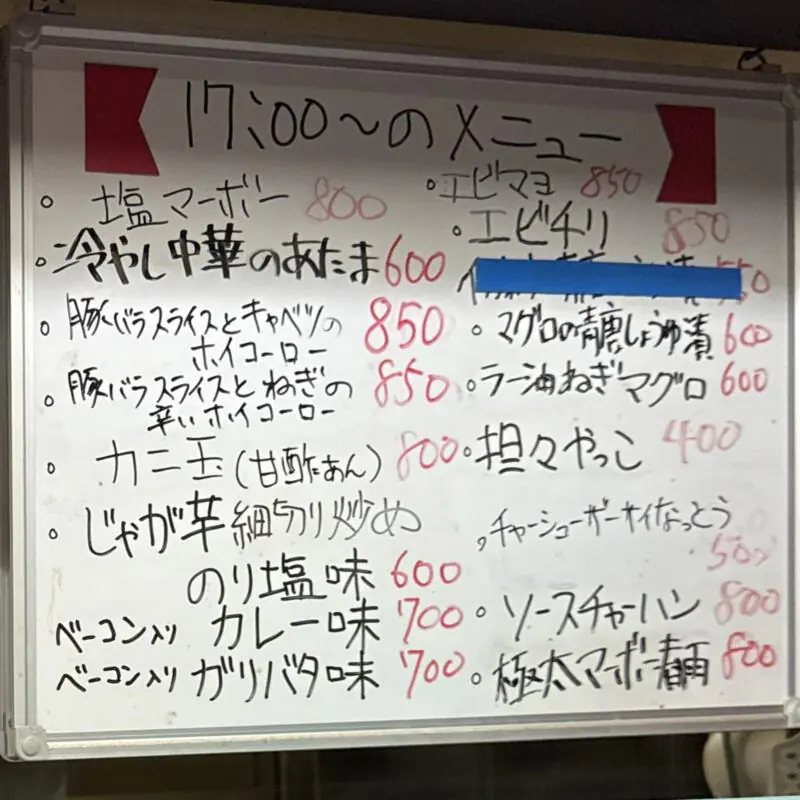 17:00〜のメニュー
・塩マーボー 800
・冷やし中華のあたま 600
・豚バラスライスとキャベツの
ホイコーロー 850
・豚バラスライスとねぎの
辛いホイコーロー 850
・カニ玉(甘酢あん) 800
・じゃが芋細切り炒め
のり塩味 600
ベーコン入り カレー味 700
ベーコン入り ガリバタ味 700
・エビマヨ 850
・エビチリ 850
50
・マグロの青唐しょうゆ漬 600
・ラー油ねぎマグロ 600
・坦々やっこ 400
・チャーシューザーサイなっとう
500
・ソースチャーハン 800
・極太マーボー春雨 800